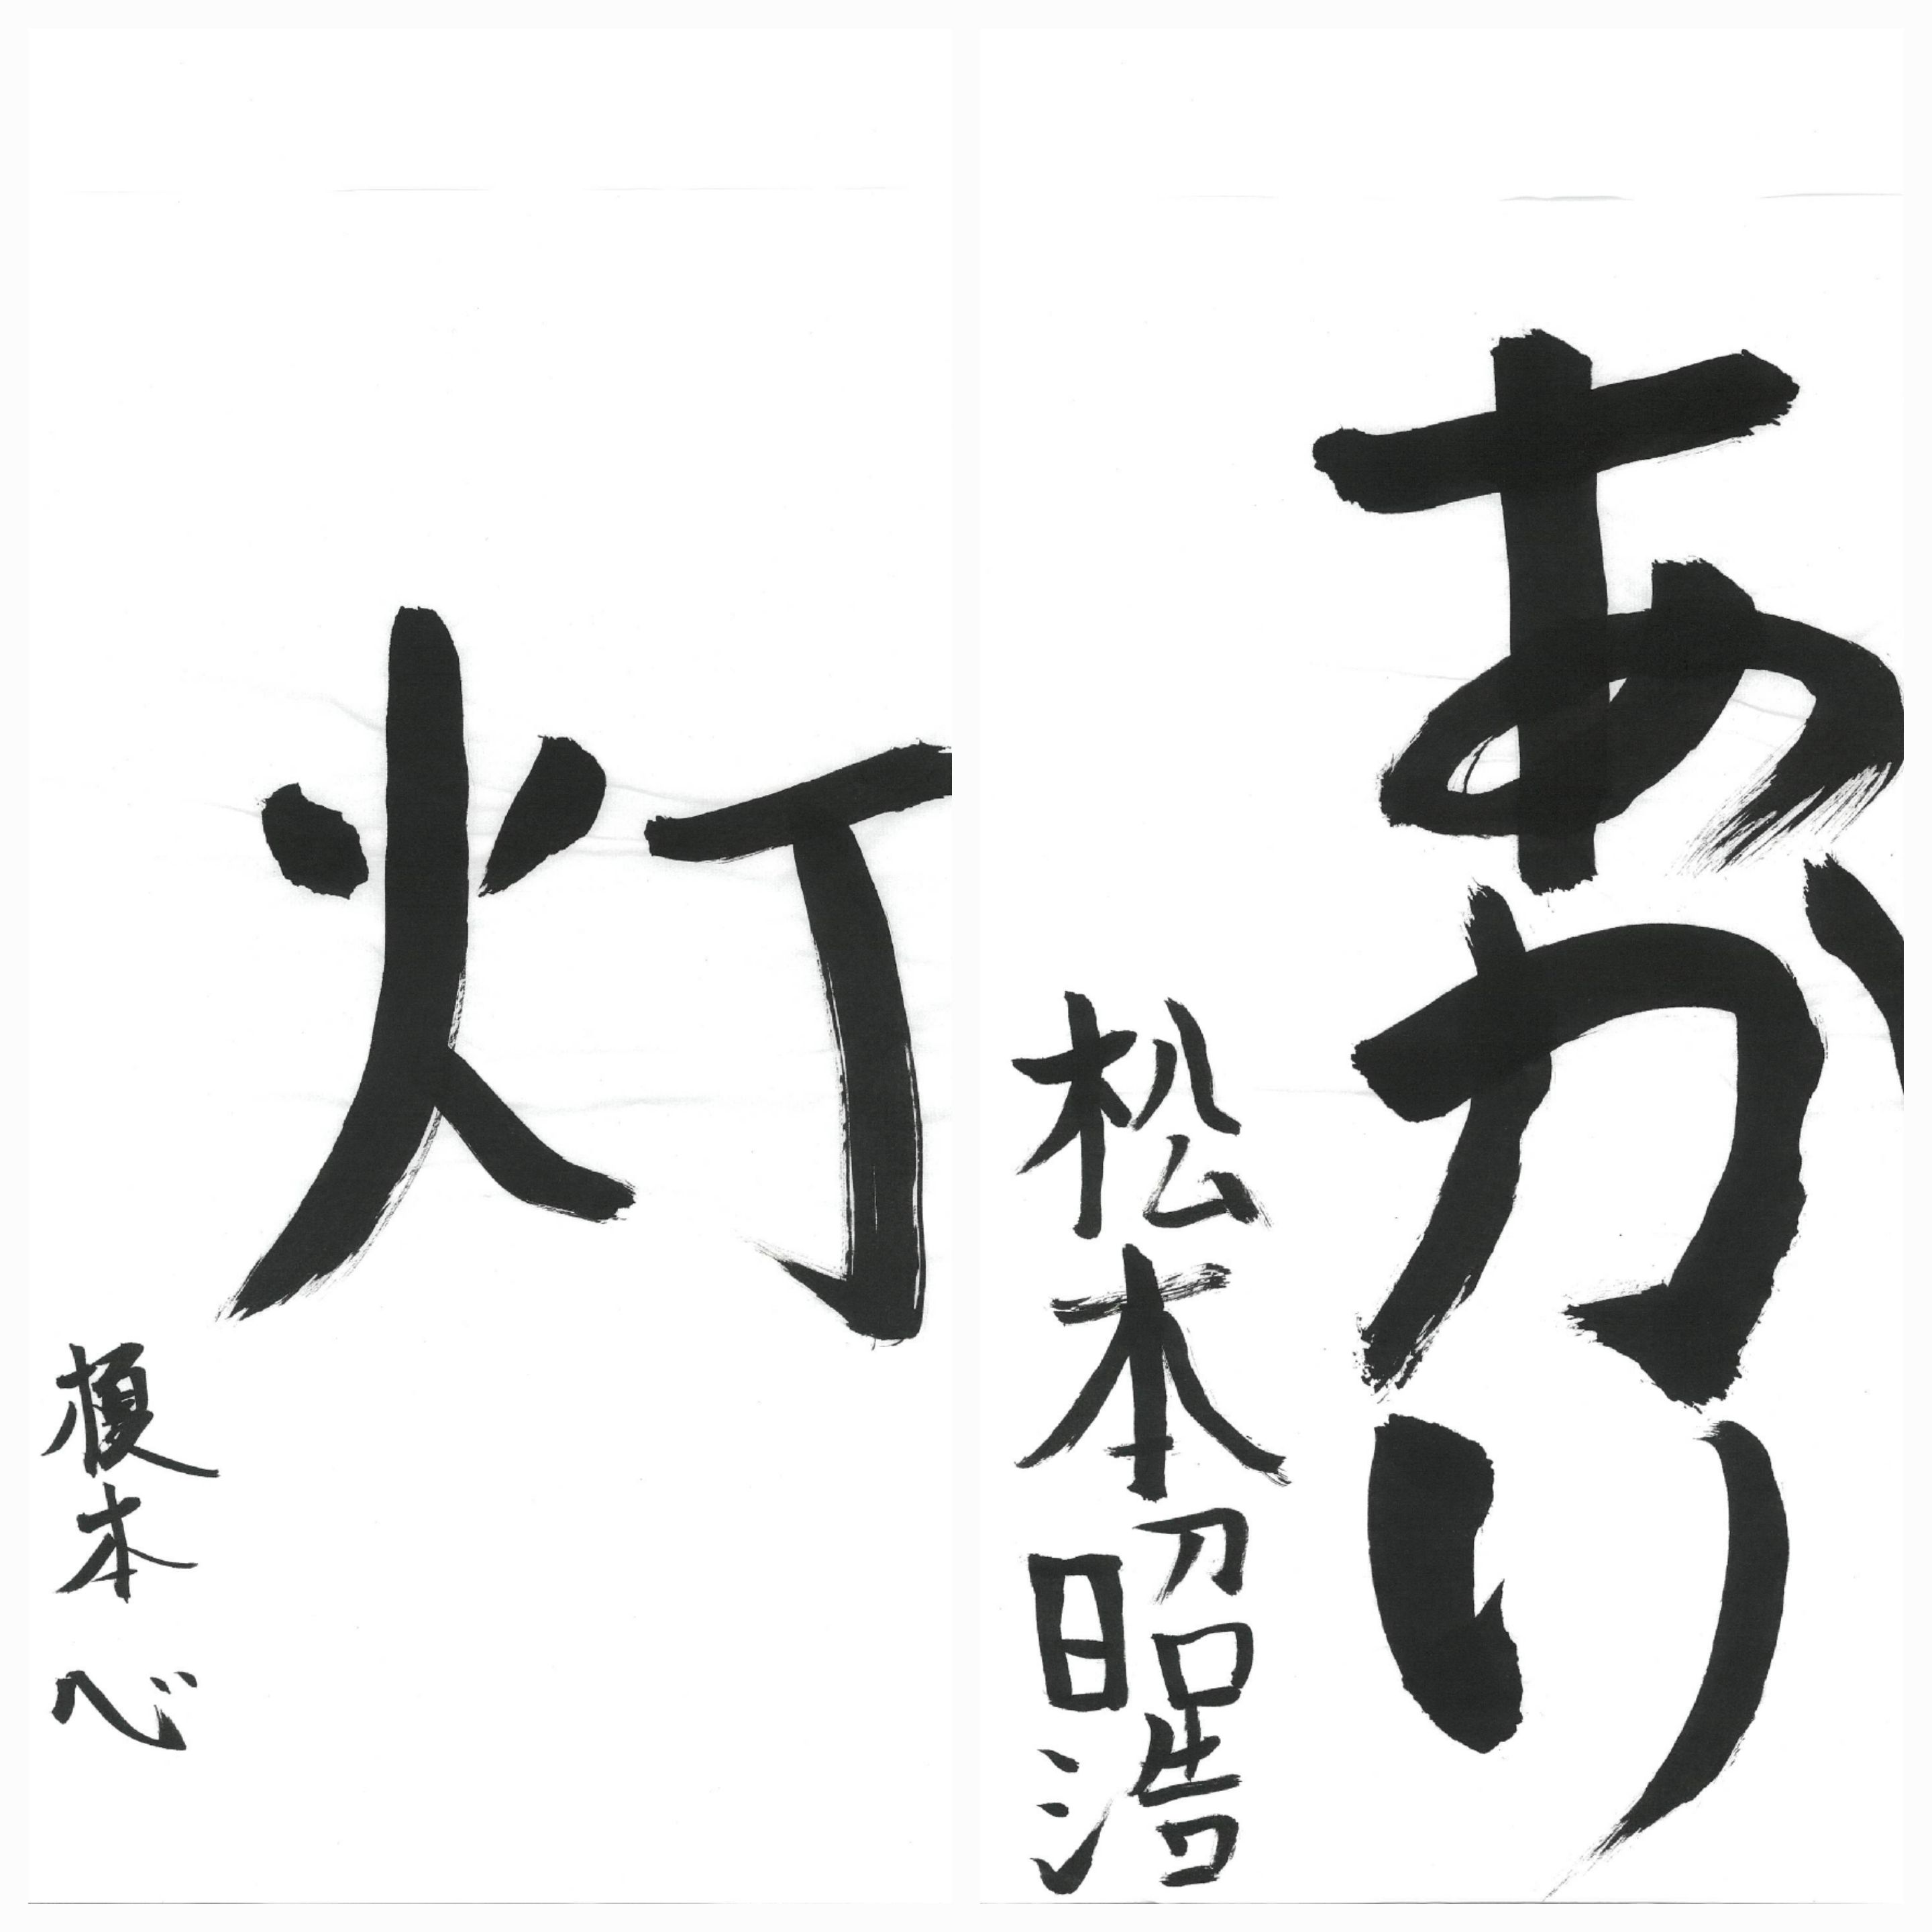 灯
榎本心
あかり
松本昭浩